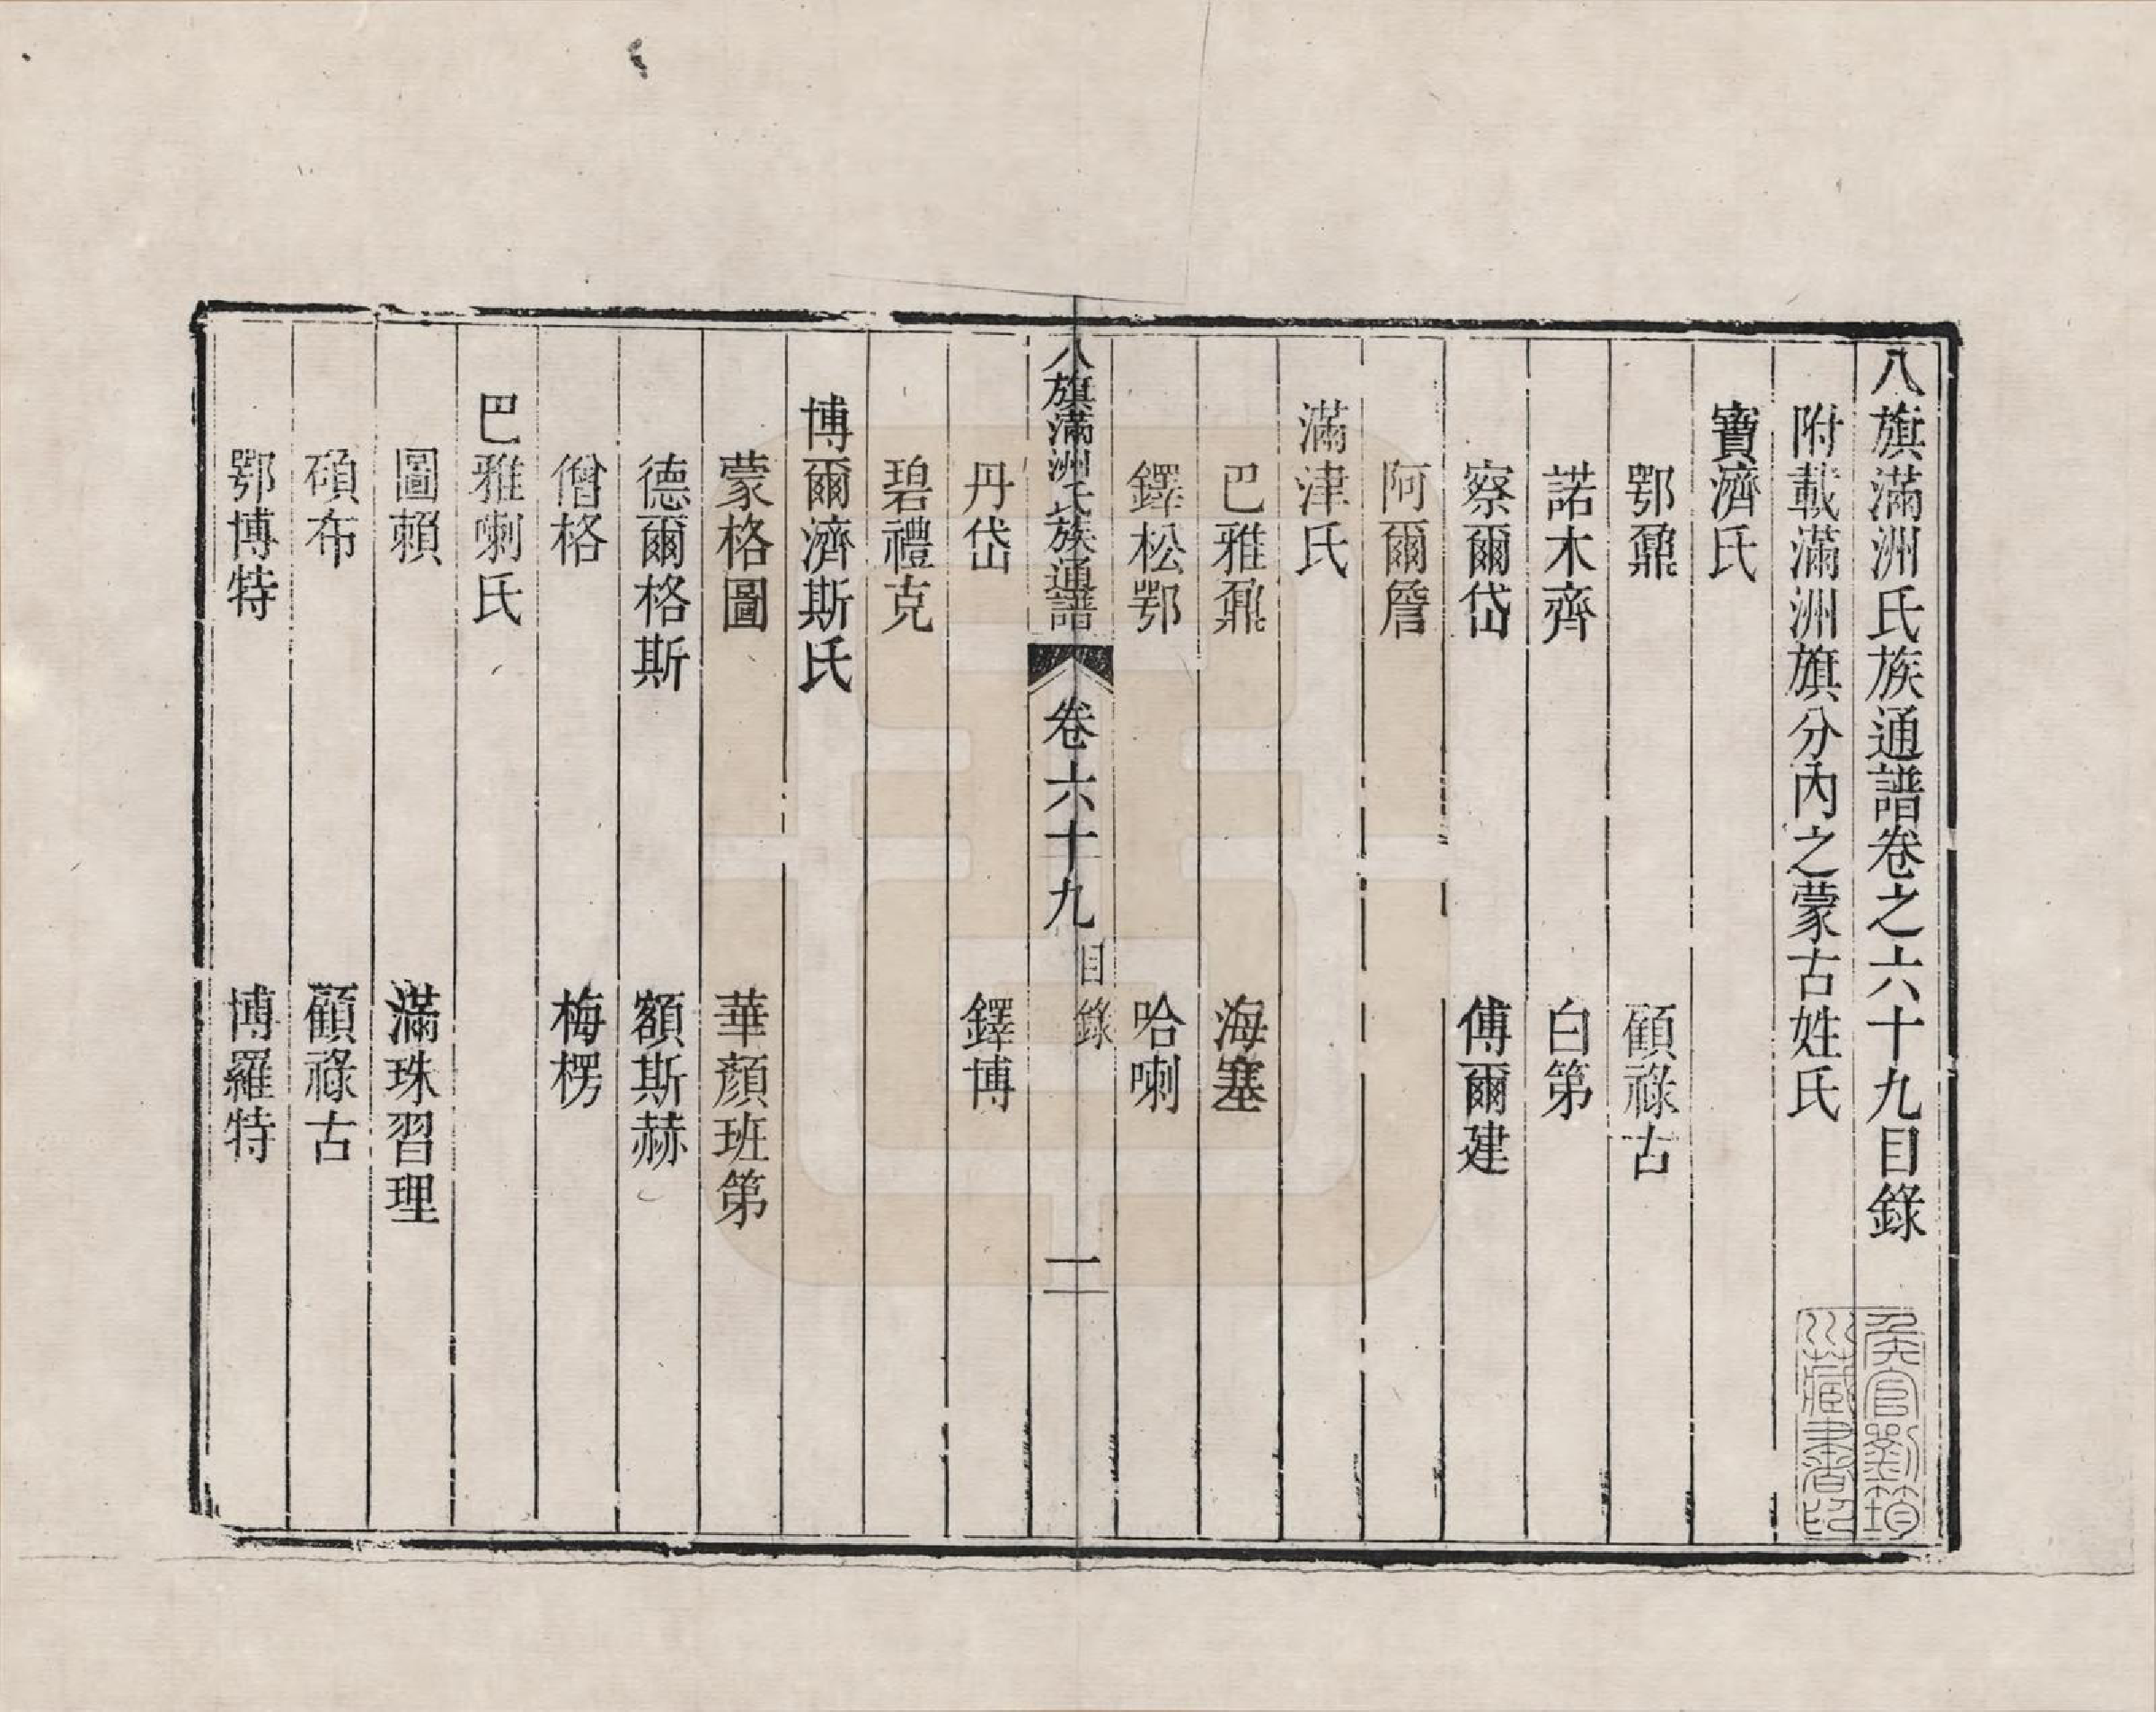 八旗滿洲氏族通譜卷之六十九目錄
附載滿洲旗分內之蒙古姓氏
寶濟氏
鄂鼐 顧祿古
諾木齊 白第
察爾岱 傅爾建
阿爾詹
滿津氏
巴雅鼐 海塞
鐸松鄂 哈喇
八旗滿洲氏族通譜 卷六十九 目錄 一
丹岱 鐸博
碧禮克
博爾濟斯氏
蒙格圖 華顏班第
德爾格斯 額斯赫
僧格 梅楞
巴雅喇氏
圖賴 滿珠習理
碩布 顧祿古
鄂博特 博羅特
侯官劉筠
川藏書印